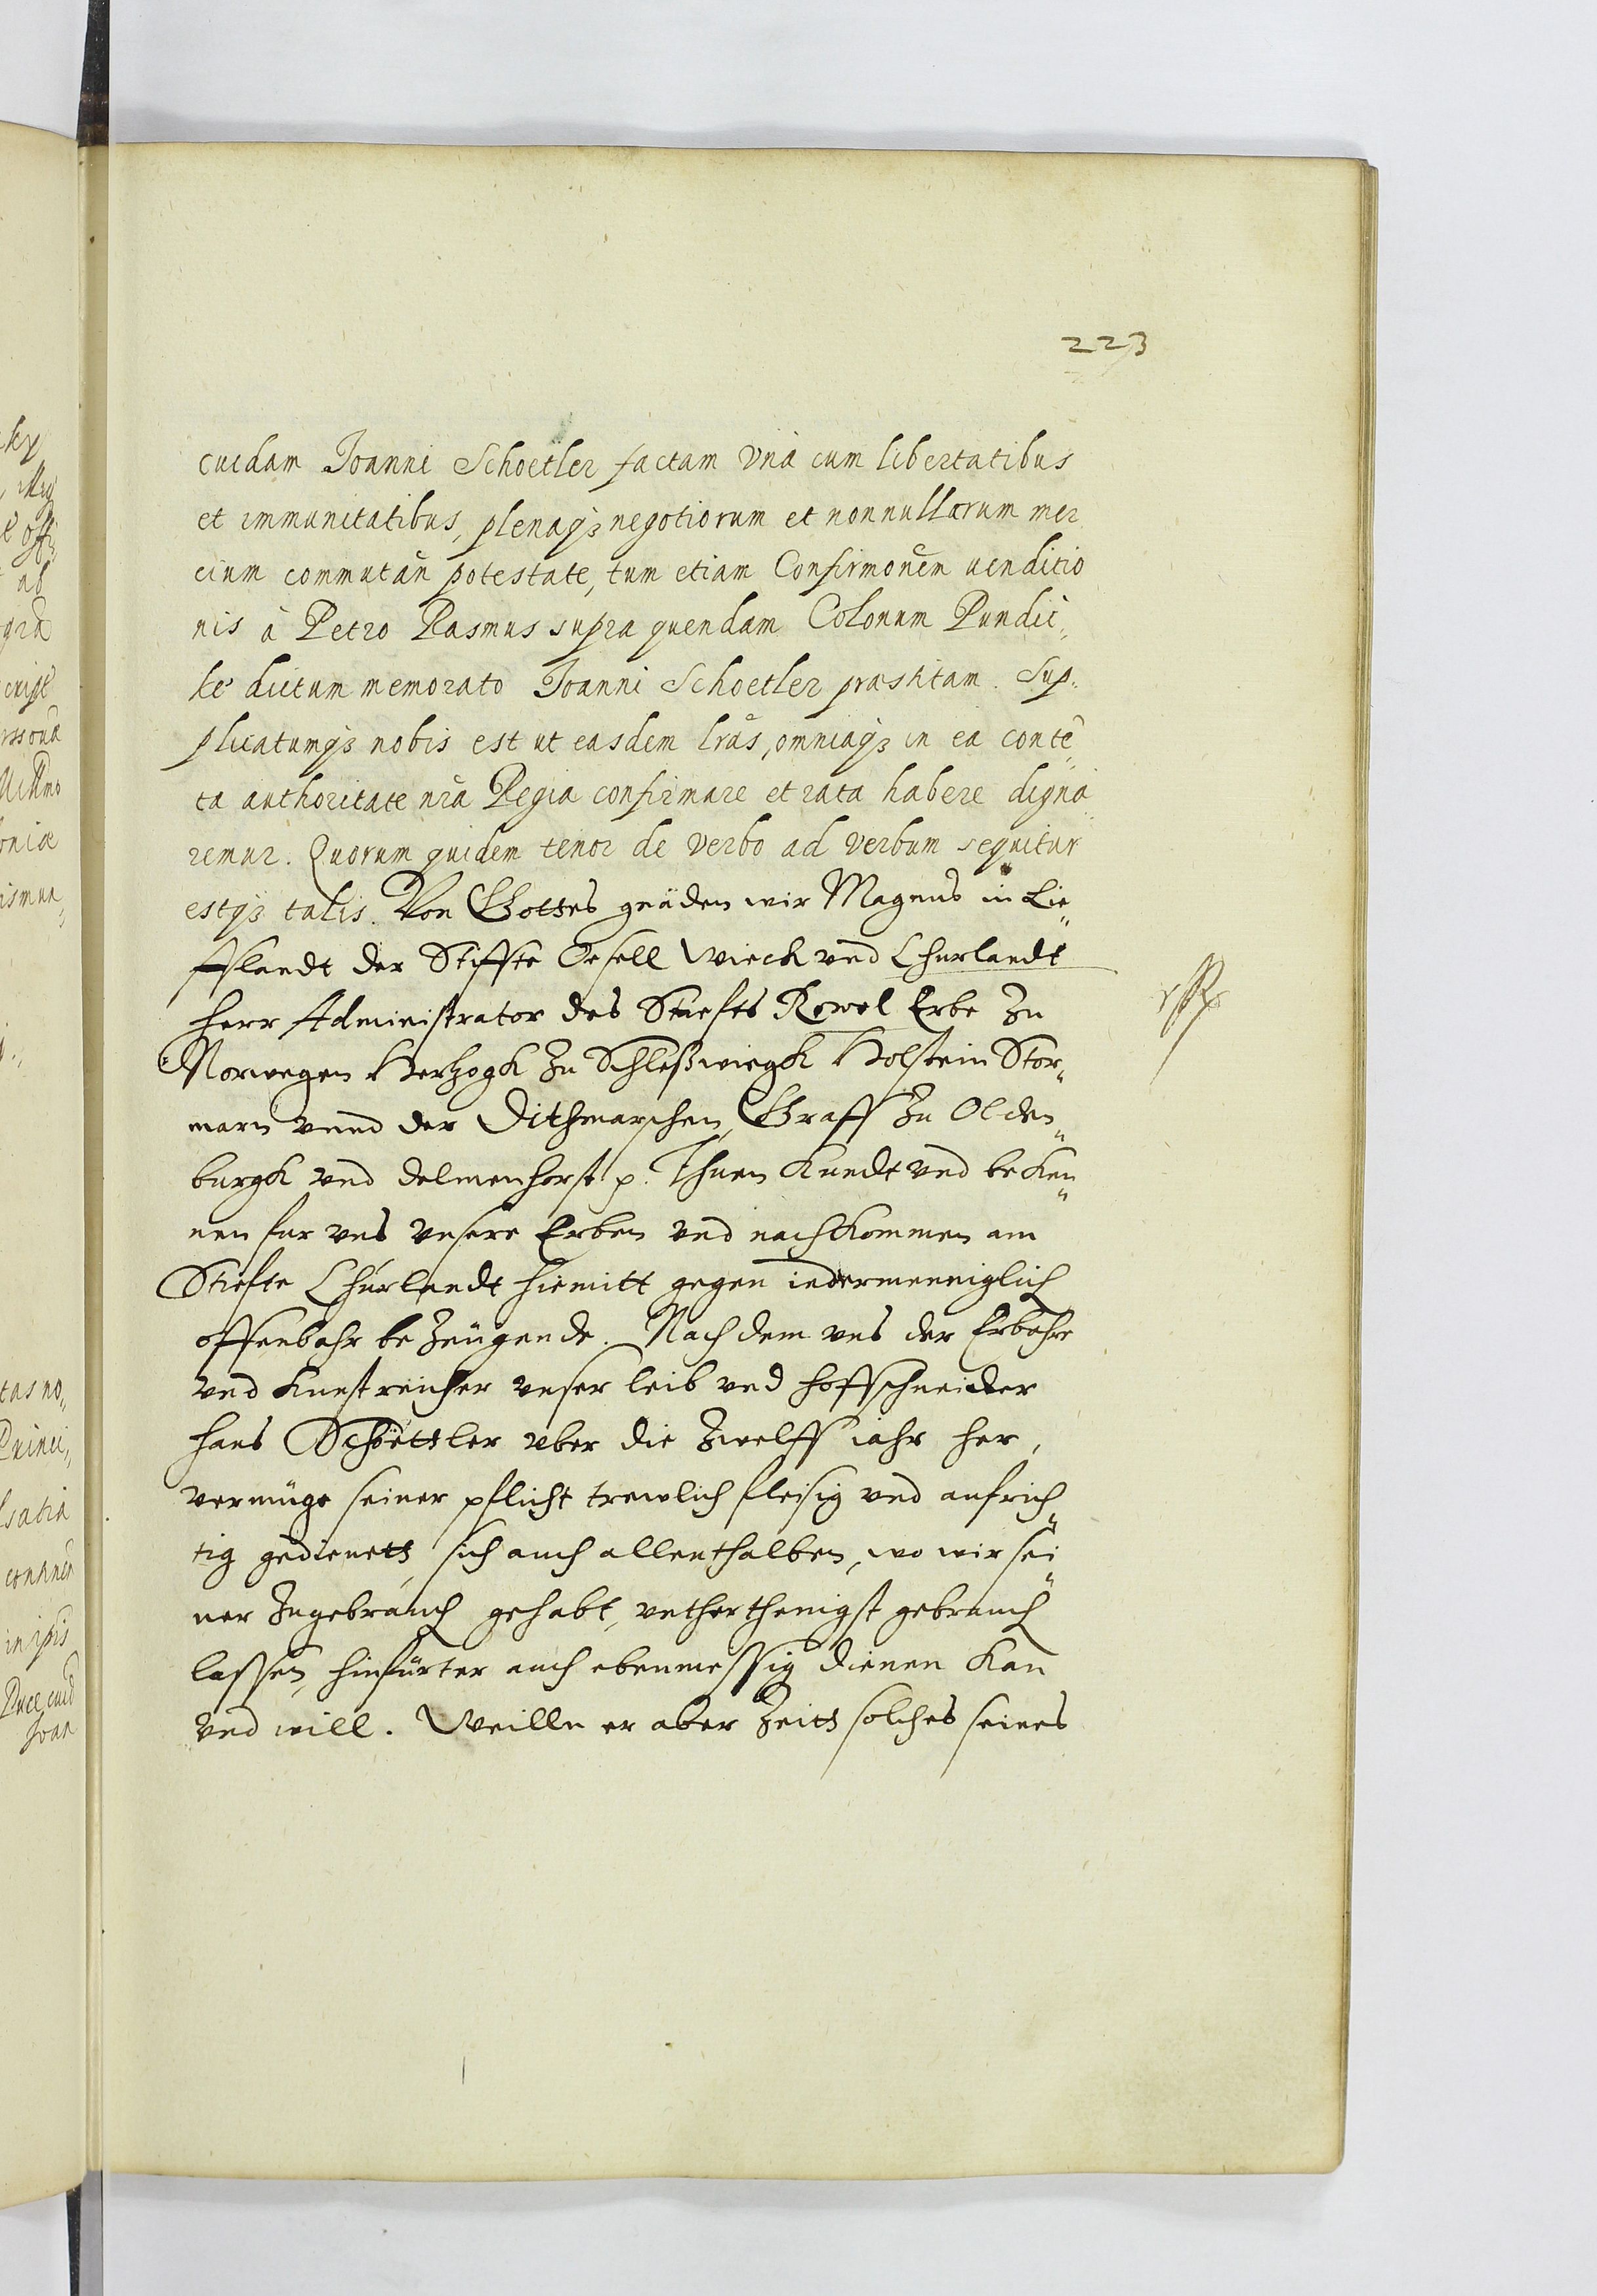 223
cuidam Joanni Schoetler factam unà cum libertatibus
et immunitatibus, plenaqȝ negotiorum et nonnullarum mer
cium commutãn potestate, tum etiam Confirmonẽm uenditio
nis à Petro Rasmus supra quendam Colonum Pundic„
ke dictum memorato Joanni Schoetler prastitam. Sup„
plicatumqȝ nobis est ut easdem lrãs, omniaqȝ in ea contẽ„
ta authoritate nrã Regia confirmare et rata habere digna
remur. Quorum quidem tenor de verbo ad verbum sequitur
estqȝ talis. Von Gottes gnaden wir Magnus in Lie„
fflandt der Stiffte Oesell Wieck vnd Churlandt
Herr Administrator des Stiefts Revel Erbe zu
Norwegen Hertzogk zu Schleßwiegk Holstein Stor„
marn vnnd der Dithmarschen, Graff zu Olden„
burgk vnd delmenhorst p. Thuen Kundt vnd beken„
nen fur vns vnsere Erben vnd nachkommen am
Stiefte Churlandt hiemitt gegen iedermenniglich
offenbahr bezeugende. Nach dem vns der Erbahre
vnd Kunstreicher vnser leib vnd hoffschneider
Hans Schöettler vber die zwelff iahr her,
vermüge seiner pflicht trewlich fleisig vnd aufrich„
tig gedienett, sich auch allenthalben, wo wir sei„
ner zugebrauch gehabt, vntherthenigst gebrauch
lassen, hinfürter auch ebenmessig dienen kan
vnd will. Weilln er aber zeitt solches seines